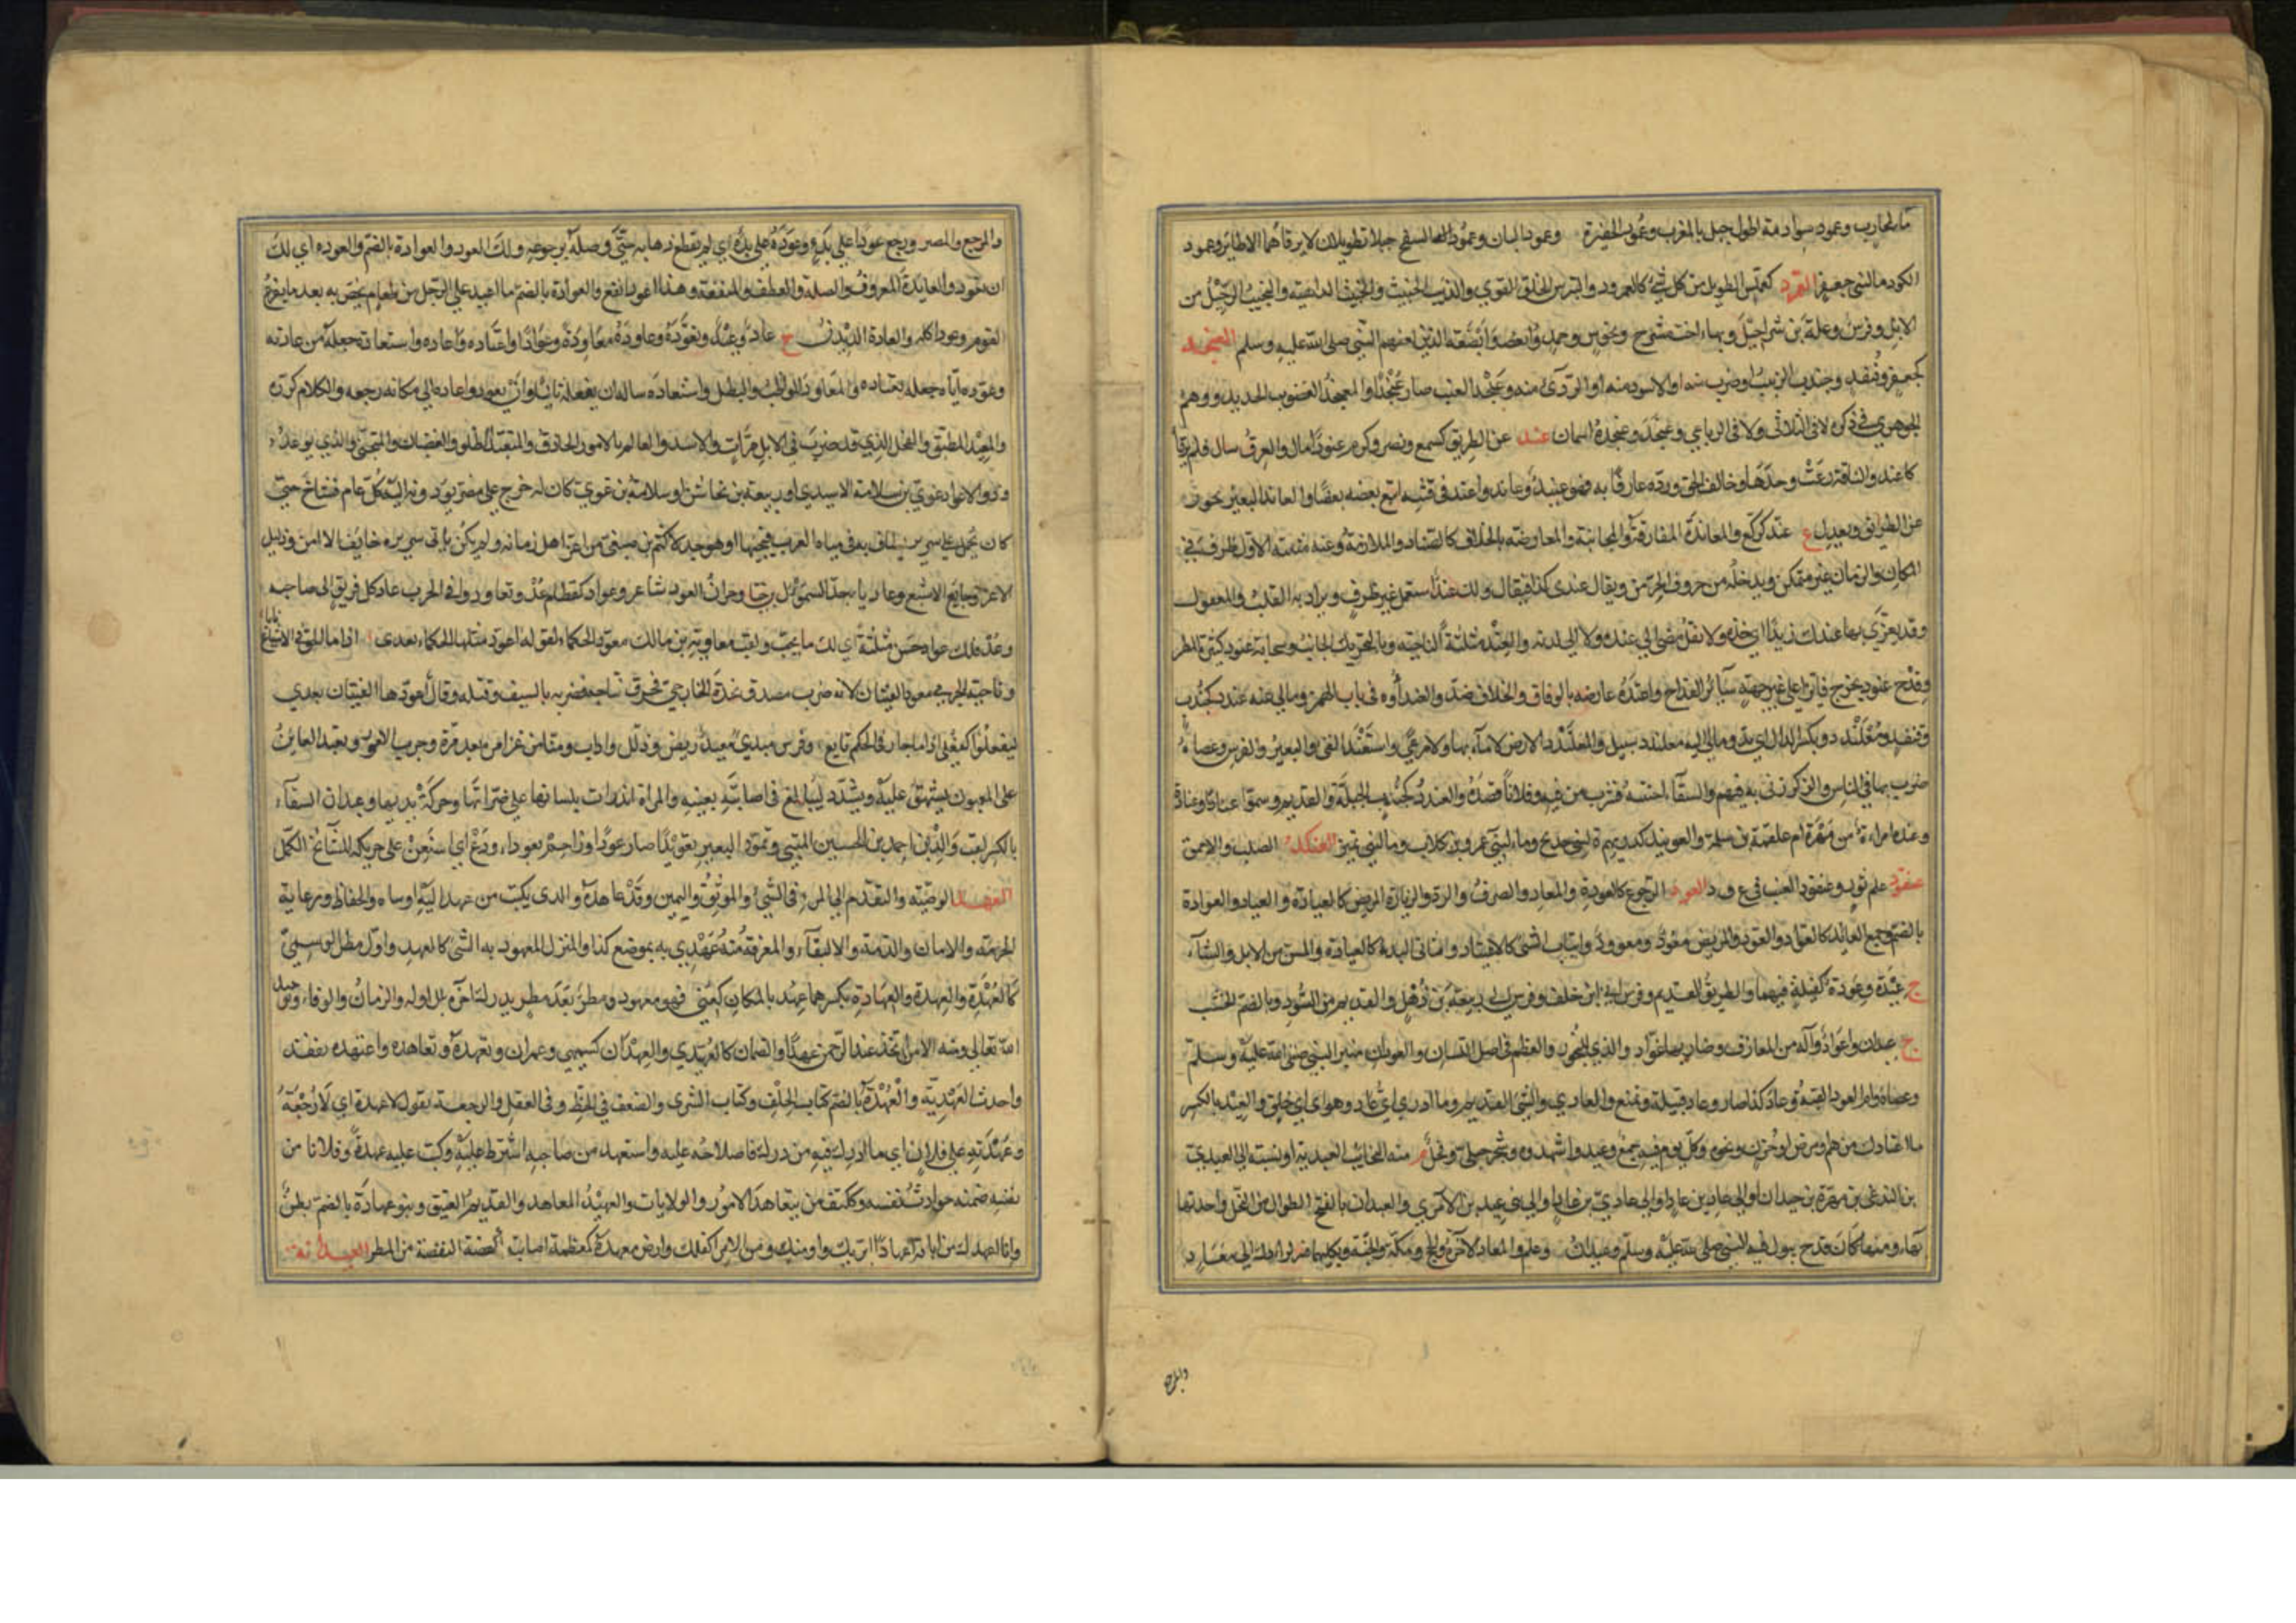 ماء لمحارب وعمود سوادمة اطول جبل بالمغرب وعمود الحفيرة وعمود البان وعمود السفح جبلان طويلان لا يرقاهما الا طائر وعمود
الكود ماء لبنى جعفر العمرد كعملس الطويل من كل شئ كالعمرود والشرس الخلق القوي والذئب الخبيث والنجيب الرحيل من
الابل وفرس وعلة بن شراحيل وبهاء اخت مشرح ومخوس وجمد وابضعة الذين لعنهم النبي صلى الله عليه وسلم العنجد
كجعفر وقنفذ وجندب الزبيب او ضرب منه او الاسود منه او الردئ منه وعنجد العنب صار عنجدا والمعنجد الغضوب الحديد ووهم
الجوهري في ذكره لا في الثلاثي ولا في الرباعي وعنجد وعنجدة اسمان عند عن الطريق كسمع ونصر وكرم عنودا مال والعرق سال فلم يرقأ
كاعند والناقة رعت وحدها وخالف الحق ورده عارفا به فهو عنيد وعاند واعند في قيئه اتبع بعضه بعضا والعاند البعير يحور
عن الطريق ويعدل ج عند كركع والمعاندة المفارقة والمجانبة والمعارضة بالخلاف كالعناد والملازمة وعند مثلثة الاول ظرف في
المكان والزمان غير متمكن ويدخله من حروف الجر من ويقال عندى كذا فيقال ولك عند استعمل غير ظرف ويراد به القلب والمعقول
وقد يغرى بها عندك زيدا اي خذه ولا تقل مضى الي عنده ولا الي لدنه والعند مثلثة الناحية وبالتحريك الجانب وسحابة عنود كثيرة المطر
وقدح عنود يخرج فائزا على غير جهة سائر القداح واعنده عارضه بالوفاق والخلاف ضد والعندأوة في باب الهمز ومالي عنه عندد كجندب
وقنفذ ومعلندد وبكسر الدال اي بد ومالي اليه معلندد سبيل والمعلندد الارض لا ماء بها ولا مرعى واستعند القئ والبعير والفرس وعصاه
ضرب بها في الناس والذكر زنى به فيهم والسقاء اختنثه فشرب من فيه وفلانا قصده والعندد كجندب الحيلة والقديم وسموا عنادا وعنادة
وعندة امرأة من مهرة ام علقمة بن سلمة والعويند كدريهم ة لبنى خديج وماء لبنى عمرو بن كلاب وماء لبنى نمير العنكد الصلب والاحمق
عنقود علم ثور وعنقود العنب في ع ق د العود الرجوع كالعودة والمعاد والصرف والرد وزيارة المريض كالعياد والعيادة والعوادة
بالضم وجمع العائد كالعواد والعود والمريض معود ومعوود وانتياب الشئ كالاعتياد وثاني البدء كالعياد والمسن من الابل والشاء
ج عيدة وعودة كفيلة فيهما والطريق القديم وفرس ابي بن خلف وفرس ابي ربيعة بن ذهل والقديم من السودد وبالضم الخشب
ج عيدان واعواد وآلة من المعازف وضاربها عواد والذي للبخور والعظم في اصل اللسان والعودان منبر النبي صلى الله عليه وسلم
وعصاه وام العود القبة وعاد كذا صار وعاد قبيلة ويمنع والعادي والشئ القديم وما ادري اي عاد هو اي اي خلق والعيد بالكسر
ما اعتادك من هم او مرض او حزن ونحوه وكل يوم فيه جمع وعيدوا شهدوه وشجر جبلي وفحل م منه النجائب العيدية او نسبة الى العيدي
بن الندغى بن مهرة بن حيدان او الى عاد بن عاد او الى عادي بن عاد او الى بني عيد بن الآمري والعيدان بالفتح الطوال من النخل واحدتها
بهاء ومنها كان قدح يبول فيه النبي صلى الله عليه وسلم وعيدان وعلم والمعاد الآخرة والحج ومكة والجنة وبكليهما فسر لرادك الى معاد
والمرجع
والمرجع والمصير ورجع عودا على بدء وعوده على بدئه اي لم يقطع ذهابه حتى وصله برجوعه ولك العود والعوادة بالضم والعودة اي لك
ان تعود والعائدة المعروف والصلة والعطف والمنفعة وهذا اعود انفع والعوادة بالضم ما اعيد على الرجل من طعام يخص به بعد ما يفرغ
القوم وعود اكله والعادة الديدن ج عاد وعيد وتعوده وعاوده معاودة وعوادا واعتاده واعاده واستعاده جعله من عادته
وعوده اياه جعله يعتاده والمعاود المواظب والبطل واستعاده سأله ان يفعله ثانيا وان يعود واعاده الي مكانه رجعه والكلام كرره
والمعيد المطيق والفحل الذي قد ضرب في الابل مرات والاسد والعالم بالامور الحاذق والمتعيد الظلوم والغضبان والمتجنى والذي يوعد
وذو الاعواد غوي بن سلامة الاسيدي او ربيعة بن مخاشن او سلامة بن غوي كان له خرج على مضر يؤدونه اليه كل عام فشاخ حتى
كان يحمل على سرير يطاف به في مياه العرب فيجبيها او هو جد لاكثم بن صيفي من اعز اهل زمانه ولم يكن يأتي سريره خائف الا امن وذليل
الا عز وجائع الا شبع وعادياء جد السموأل بن حيا وجران العود شاعر وعواد كقطام عد وتعاودوا في الحرب عاد كل فريق الى صاحبه
وعد فلك عواد حسن مثلثة اي لك ما تحب ولقب معاوية بن مالك معود الحكماء لقوله اعود مثلها الحكماء بعدى اذا ما الحق في الاشياع نابا
وناجية الجرمي معود الفتيان لانه ضرب مصدق نجدة الخارجي فخرق بناجية فضربه بالسيف وقتله وقال اعودها الفتيان بعدي
ليفعلوا كفعلي اذا ما جار في الحكم تابع وفرس مبدئ معيد ريض وذلل وادب ومنا من غزا مرة بعد مرة وجرب الامور وتعيد العائن
على المعيون تشهق عليه وتشدد ليبالغ في اصابته بعينه والمرأة اندرأت بلسانها على ضراتها وحركت يديها وعيدان السقاء
بالكسر لقب والد احمد بن الحسين المتنبي وعود البعير تعويدا صار عودا وزاحم بعود او دع اي استعن على حربك بالمشائخ الكمل
العهد الوصية والتقدم الى المرء في الشئ والموثق واليمين وقد عاهده والذي يكتب من عهد اليه اوصاه والحفاظ ورعاية
الحرمة والامان والذمة والالتقاء والمعرفة منه عهدي به بموضع كذا والمنزل المعهود به الشئ كالعهد واول مطر الوسمي
كالعهدة والعهدة والعهادة بكسرهما عهد المكان كعني فهو معهود ومطر بعد مطر يدرك آخره بلل اوله والزمان والوفاء وتوحيد
الله تعالى ومنه الا من اتخذ عند الرحمن عهدا والضمان كالعهيدي والعهدان كسميهى وعمران وتعهده وتعاهده واعتهده تفقده
واحدث العهد به والعهدة بالضم كتاب الحلف وكتاب الشرى والضعف في الخط وفي العقل والرجعة تقول لا عهدة اي لا رجعة
وعهدته على فلان اي ما ادرك فيه من درك فاصلاحه عليه واستعهد من صاحبه اشترط عليه وكتب عليه عهدة وفلانا من
نفسه ضمنه حوادث نفسه وككتف من يتعاهد الامور والولايات والعهيد المعاهد والقديم العتيق وبنو عهادة بالضم بطن
وانا اعهدك من اباقه اعهادا ابرئك واومنك ومن الامر اكفلك وارض معهدة كمعظمة اصابتها النفضة من المطر